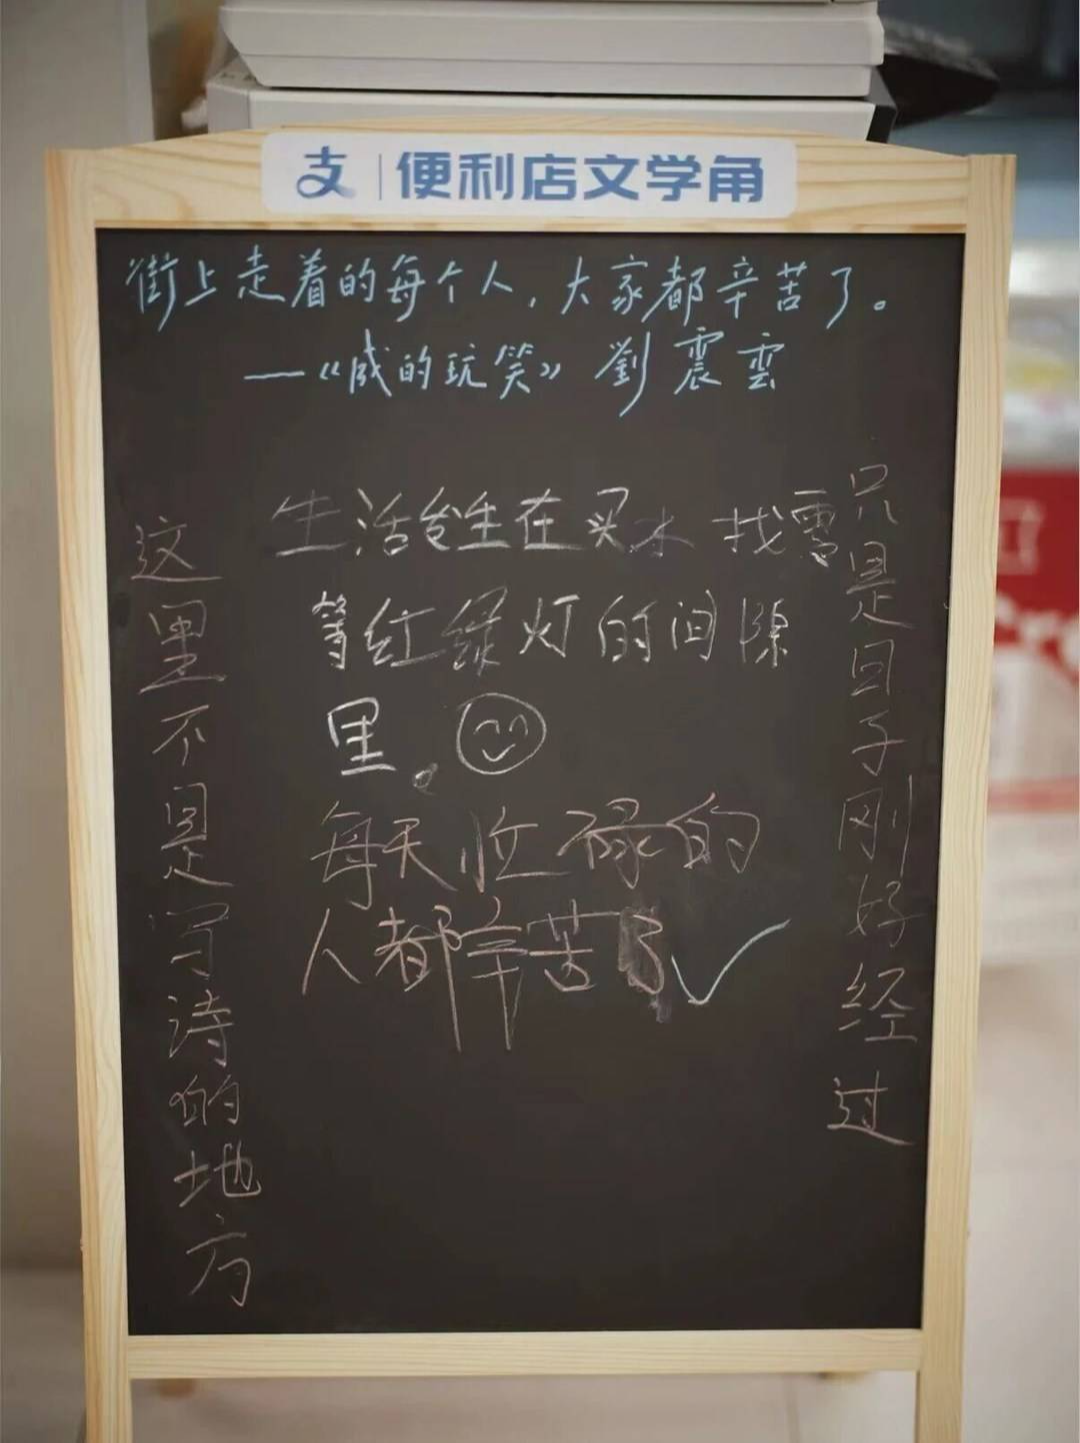 支 | 便利店文学角
街上走着的每个人，大家都辛苦了。
—《咸的玩笑》 劉震雲
生活发生在买水 找零
等红绿灯的间隙
里。
每天忙碌的
人都辛苦了
这里不是写诗的地方
只是日子刚好经过